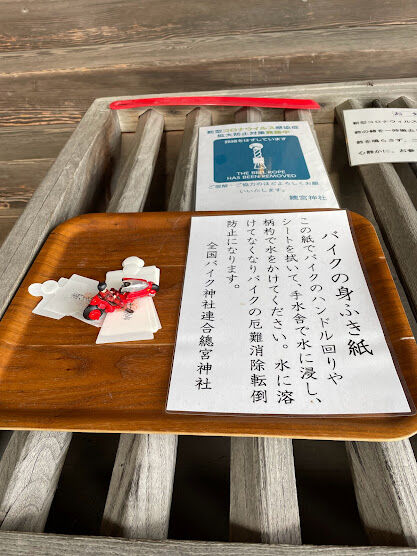 新型コロナウィルス感染症
拡大防止対策実施中
鈴緒をはずしています
THE BELL ROPE
HAS BEEN REMOVED
ご理解・ご協力のほどよろしくお願
いいたします。
總宮神社
バイクの身ふき紙
この紙でバイクのハンドル回りや
シートを拭いて、手水舎で水に浸し、
柄杓で水をかけてください。水に溶
けてなくなりバイクの厄難消除転倒
防止になります。
全国バイク神社連合總宮神社
新型コロナウ
鈴の緒を一時撤
鈴を鳴らさず、こ
心静かに、お参